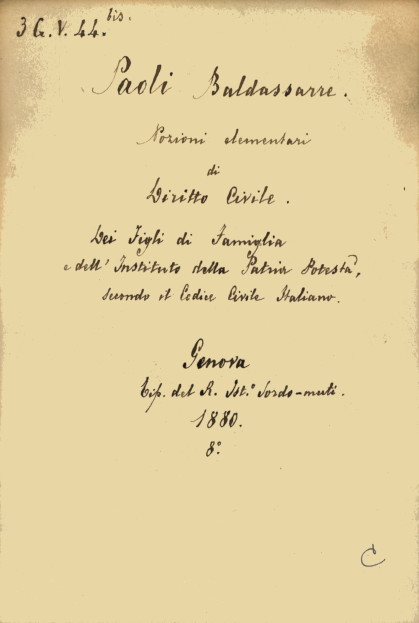 3 G. V. 44. bis.
Paoli Baldassarre.
Nozioni elementari
di
Diritto Civile.
Dei Figli di Famiglia
e dell' Instituto della Patria Potestà,
secondo il Codice Civile Italiano.
Genova
Tip. del R. Ist.° Sordo-muti.
1880.
8°.
C